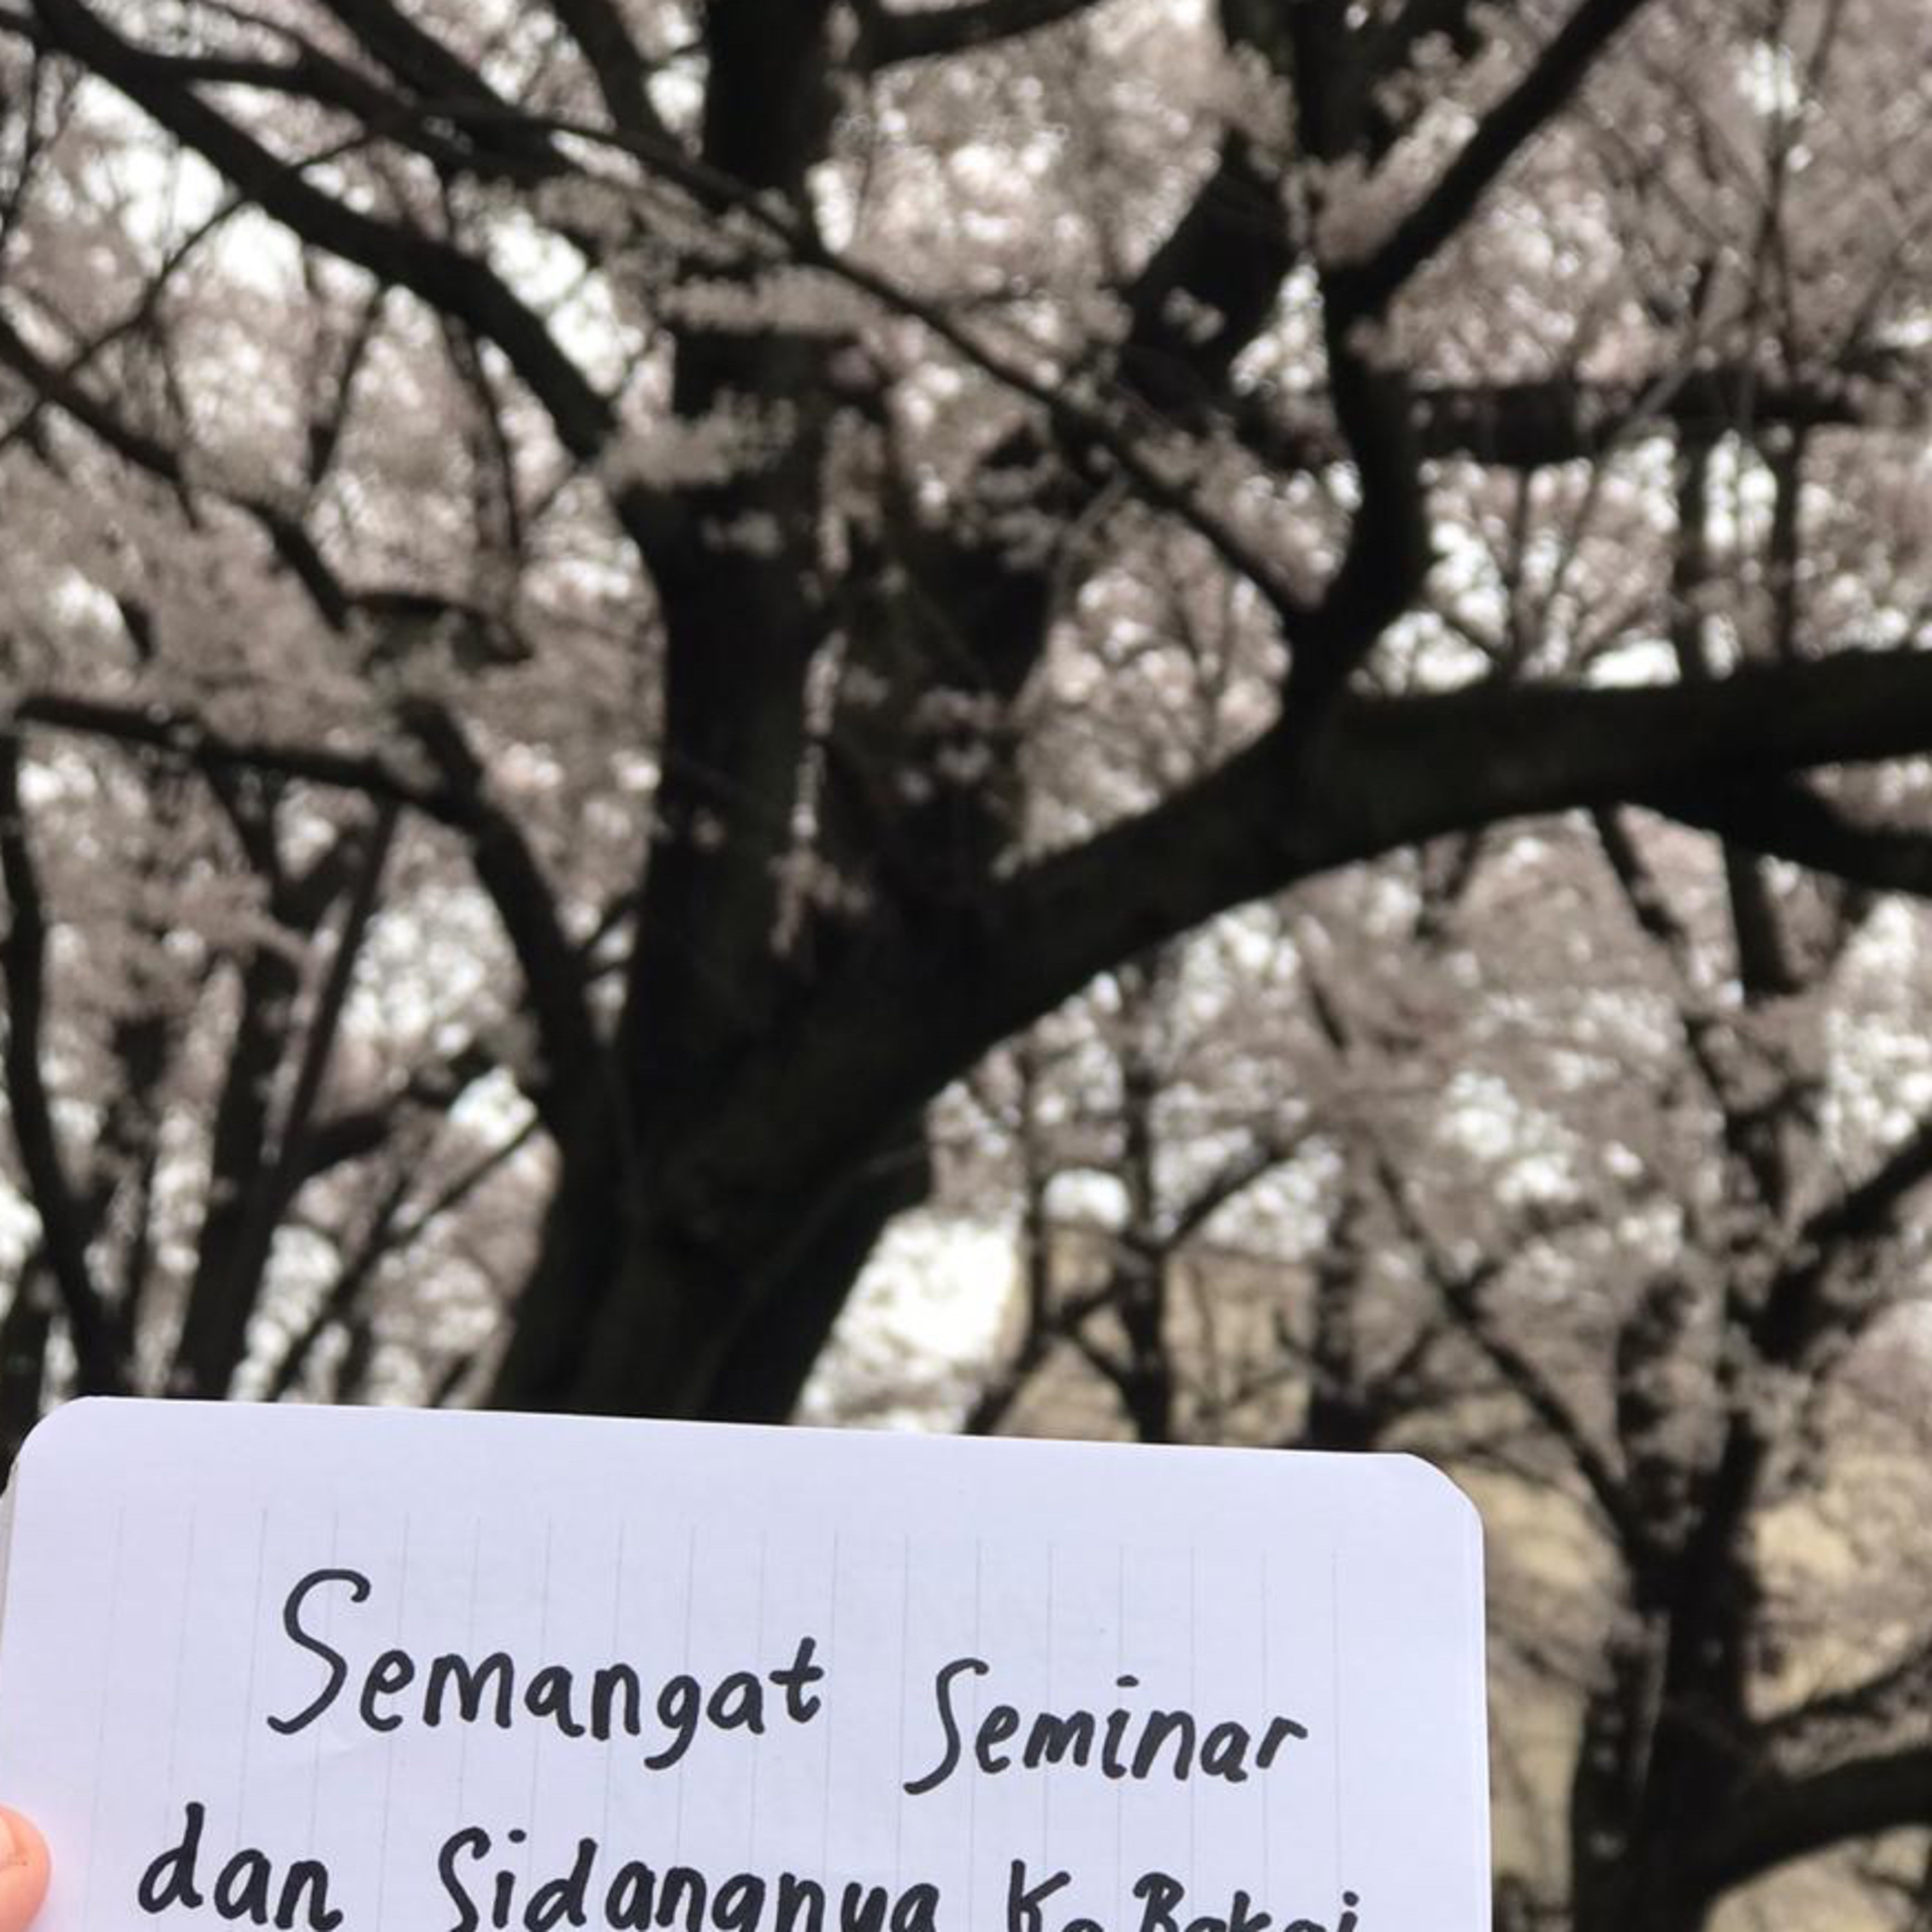 Semangat Seminar
dan Sidangnya Ka